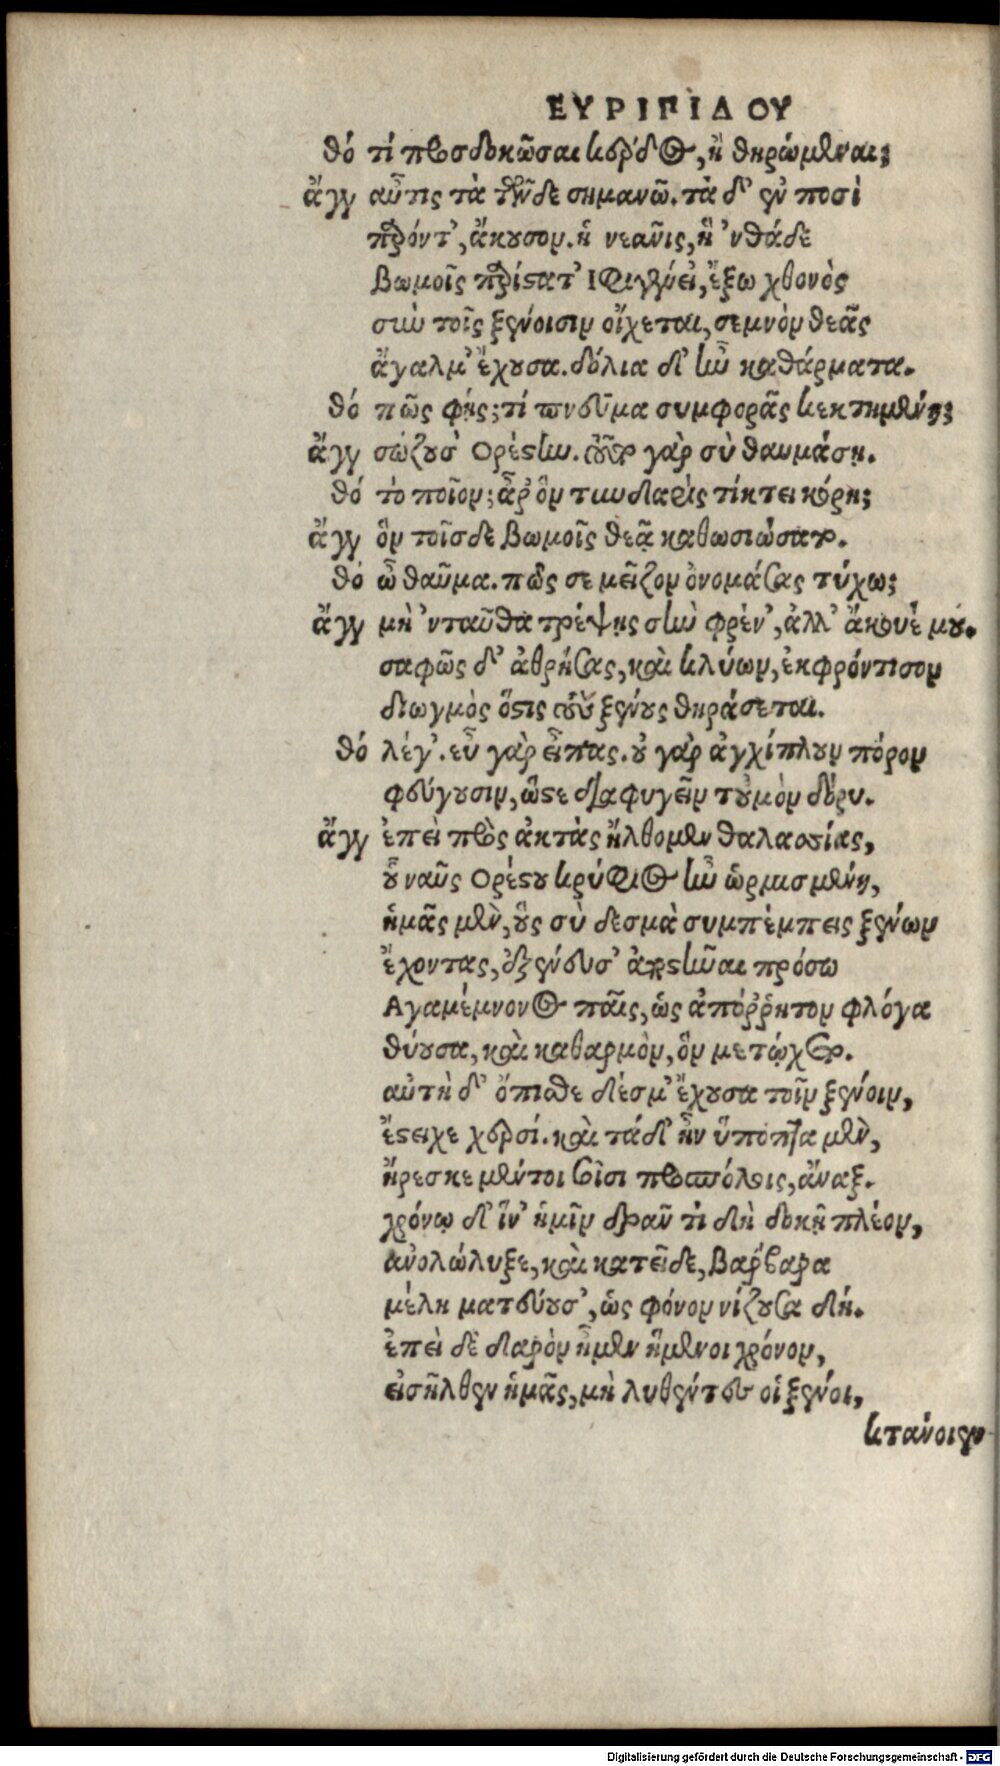 ΕΥΡΙΠΙΔΟΥ
θό τί προσδοκῶσαι κέρδος, ἢ θηρώμεναι;
ἄγγ αὖτις τὰ τῶνδε σημανῶ. τὰ δ' ἐν ποσὶ
παρόντ', ἄκουσον. ἡ νεᾶνις, ἣ 'νθάδε
βωμοῖς παρίστατ' Ιφιγένει, ἔξω χθονὸς
σὺν τοῖς ξένοισιν οἴχεται, σεμνὸν θεᾶς
ἄγαλμ' ἔχουσα. δόλια δ' ἦν καθάρματα.
θό πῶς φής; τί πνεῦμα συμφορᾶς κεκτημένη;
ἄγγ σώζουσ' Ορέστην. τοῦτο γὰρ σὺ θαυμάσῃ.
θό τὸ ποῖον; ἆρ' ὃν τυνδαρὶς τίκτει κόρη;
ἄγγ ὃν τοῖσδε βωμοῖς θεᾷ καθωσιώσατο.
θό ὦ θαῦμα. πῶς σε μεῖζον ὀνομάσας τύχω;
ἄγγ μὴ 'νταῦθα τρέψῃς σὴν φρέν', ἀλλ' ἄκουέ μου.
σαφῶς δ' ἀθρήσας, καὶ κλύων, ἐκφρόντισον
διωγμὸς ὅστις τοὺς ξένους θηράσεται.
θό λέγ'. εὖ γὰρ εἶπας. οὐ γὰρ ἀγχίπλουν πόρον
φεύγουσιν, ὥστε διαφυγεῖν τοὐμὸν δόρυ.
ἄγγ ἐπεὶ πρὸς ἀκτὰς ἤλθομεν θαλασσίας,
οὗ ναῦς Ορέστου κρύφιος ἦν ὡρμισμένη,
ἡμᾶς μὲν, οὓς σὺ δεσμὰ συμπέμπεις ξένων
ἔχοντας, ἐξένευσ' ἀποστῆναι πρόσω
Αγαμέμνονος παῖς, ὡς ἀπόῤῥητον φλόγα
θύουσα, καὶ καθαρμὸν, ὃν μετῴχετο.
αὐτὴ δ' ὄπισθε δέσμ' ἔχουσα τοῖν ξένοιν,
ἔστειχε χερσί. καὶ τάδ' ἦν ὕποπτα μὲν,
ἤρεσκε μέντοι σοῖσι προσπόλοις, ἄναξ.
χρόνῳ δ' ἵν' ἡμῖν δρᾶν τι δὴ δοκῇ πλέον,
ἀνολώλυξε, καὶ κατεῖδε, βάρβαρα
μέλη ματεύουσ', ὡς φόνον νίζουσα δή.
ἐπεὶ δὲ δαρὸν ἦμεν ἥμενοι χρόνον,
εἰσῆλθεν ἡμᾶς, μὴ λυθέντες οἱ ξένοι,
κτάνοιεν
Digitalisierung gefördert durch die Deutsche Forschungsgemeinschaft - DFG